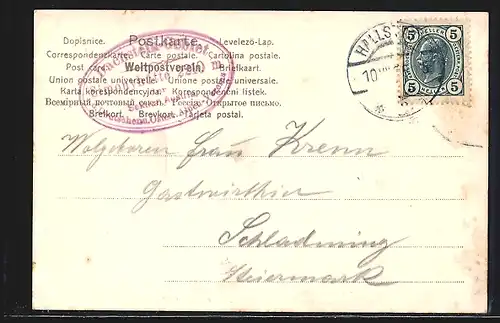 Dopisnice. Postkarte. Levelező-Lap.
Correspondenzkarte. Carte postale. Cartolina postale.
Post card. Weltpostverein. Briefkaart.
Union postale universelle. Unione postale universale.
Karta korespondencyjna. Korespondenčni listek.
Всемірный почтовый союз. Россія. Открытое письмо.
Brefkort. Brevkort. Tarjeta postal.
HALLST
10
5 5
5 5
Wolgeboren Frau Krenn
Gastwirthin
Schladming
Steiermark